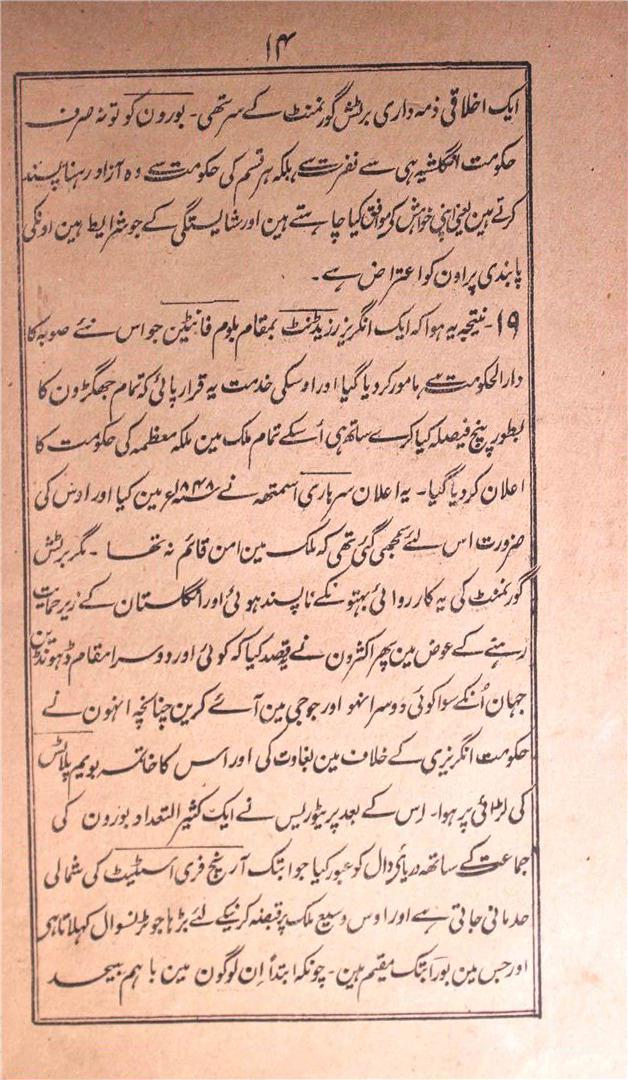 ۱۴
ایک اخلاقی ذمہ داری برٹش گورنمنٹ کے سر تھی۔ بورون کو تو نہ صرف
حکومت انگلشیہ ہی سے نفرت ہے بلکہ ہر قسم کی حکومت سے وہ آزاد رہنا پسند
کرتے ہین یعنی اپنی خواش کے موافق کیا چاہتے ہین اور شایستگی کے جو شرایط ہین اونکی
پابندی پر اون کو اعتراض ہے۔
۱۹۔ نتیجہ یہ ہوا کہ ایک انگریز رزیڈنٹ بمقام بلوم فانٹین جو اس نئے صوبہ کا
دارالحکومت ہے مامور کر دیا گیا اور اوسکی خدمت یہ قرار پائی کہ تمام جھگڑون کا
بطور پنچ فیصلہ کیا کرے ساتھ ہی اُسکے تمام ملک مین ملکہ معظمہ کی حکومت کا
اعلان کر دیا گیا۔ یہ اعلان سر ہاری اسمتھ نے ۱۸۴۸ء مین کیا اور اوس کی
ضرورت اس لئے سمجھی گئی تھی کہ ملک مین امن قائم نہ تھا۔ مگر برٹش
گورنمنٹ کی یہ کارروائی بہتونکے ناپسند ہوئی اور انگلستان کے زیر حمایت
رہنے کے عوض مین پھر اکثرون نے یہ قصد کیا کہ کوئی اور دوسرا مقام ڈھونڈین
جہان اُنکے سوا کوئی دوسرا نہو اور جو جی مین آئے کرین چنانچہ انہون نے
حکومت انگریزی کے خلاف مین بغاوت کی اور اس کا خاتمہ بویم پلاٹس
کی لڑائی پر ہوا۔ اِس کے بعد پریٹوریس نے ایک کثیر التعداد بورون کی
جماعت کے ساتھ دریائے وال کو عبور کیا جو ابتک آرینج فری اسٹیٹ کی شمالی
حد مانی جاتی ہے اور اوس وسیع ملک پر قبضہ کرنیکے لئے بڑھا جو ٹرنسوال کہلاتا ہی
اور جس مین بور ابتک مقیم ہین۔ چونکہ ابتداً اِن لوگون مین باہم بیحد